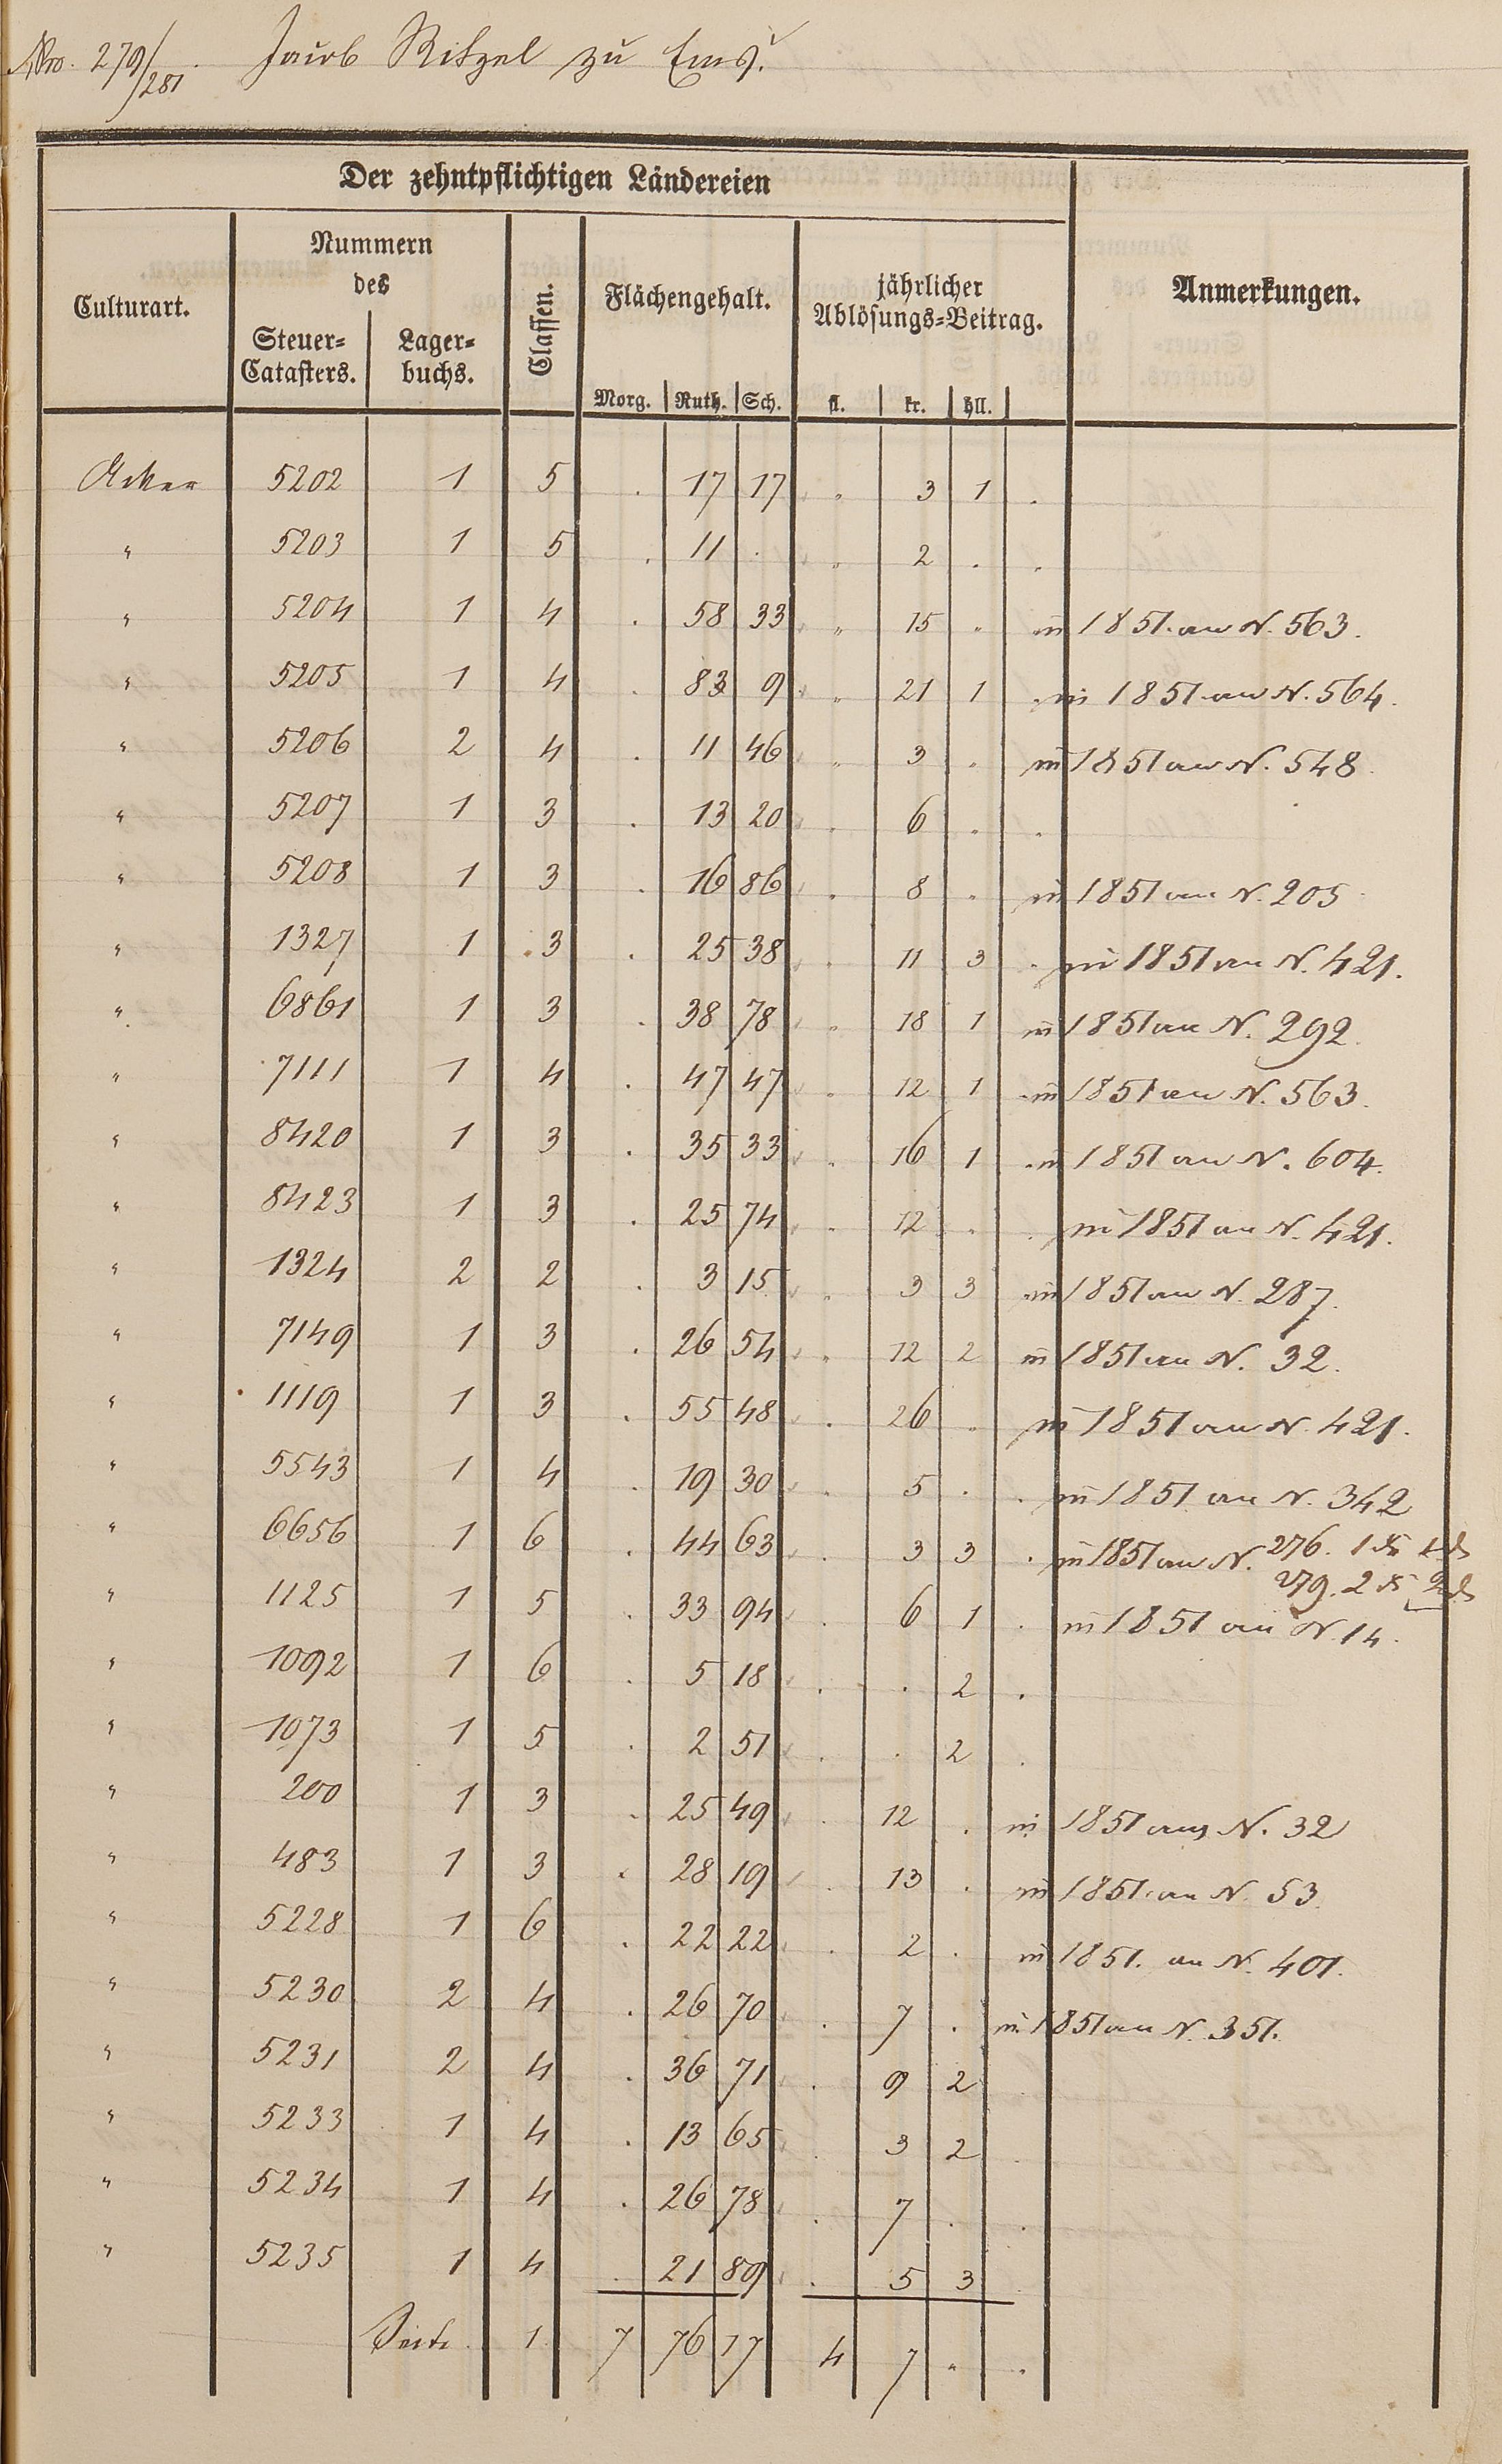 Nro. 279/281. Jacob Ritzel zu Ems.
Der zehntpflichtigen Ländereien
Culturart.
Nummern
des
Steuer=
Catasters.
Lager=
buchs.
Classen.
Flächengehalt.
Morg. Ruth. Sch.
jährlicher
Ablösungs=Beitrag.
fl. kr. hll.
Anmerkungen.
Acker 5202 1 5 . 17 17 " 3 1 .
" 5203 1 5 . 11 . " 2 . .
" 5204 1 4 . 58 33 " 15 " in 1851 an N. 563.
" 5205 1 4 . 83 9 " 21 1 in 1851 an N. 564.
" 5206 2 4 . 11 46 " 3 " in 1851 an N. 548
" 5207 1 3 . 13 20 . 6 . .
" 5208 1 3 . 16 86 . 8 . in 1851 an N. 205
" 1327 1 3 . 25 38 . 11 3 . in 1851 an N. 421.
" 6861 1 3 . 38 78 " 18 1 in 1851 an N. 292.
" 7111 1 4 . 47 47 " 12 1 in 1851 an N. 563.
" 8420 1 3 . 35 33 . 16 1 in 1851 an N. 604.
" 8423 1 3 . 25 74 . 12 . . in 1851 an N. 421.
" 1324 2 2 . 3 15 " 3 3 in 1851 an N. 287.
" 7149 1 3 . 26 54 " 12 2 in 1851 an N. 32.
" 1119 1 3 . 55 48 . 26 . in 1851 an N. 421.
" 5543 1 4 . 19 30 . 5 . . in 1851 an N. 342
" 6656 1 6 . 44 63 . 3 3 . in 1851 an N. 276. 1
279. 2
" 1125 1 5 . 33 94 . 6 1 . in 1851 an N. 14.
" 1092 1 6 . 5 18 . . 2 .
" 1073 1 5 . 2 51 . . 2 .
" 200 1 3 . 25 49 . 12 . in 1851 an N. 32
" 483 1 3 . 28 19 . 13 . in 1851 an N. 53.
" 5228 1 6 . 22 22 . 2 . in 1851. an N. 401.
" 5230 2 4 . 26 70 . 7 . in 1851 an N. 351.
" 5231 2 4 . 36 71 . 9 2
" 5233 1 4 . 13 65 . 3 2
" 5234 1 4 . 26 78 . 7 . .
" 5235 1 4 . 21 89 . 5 3
Seite 1. 7 76 17 4 7 " .